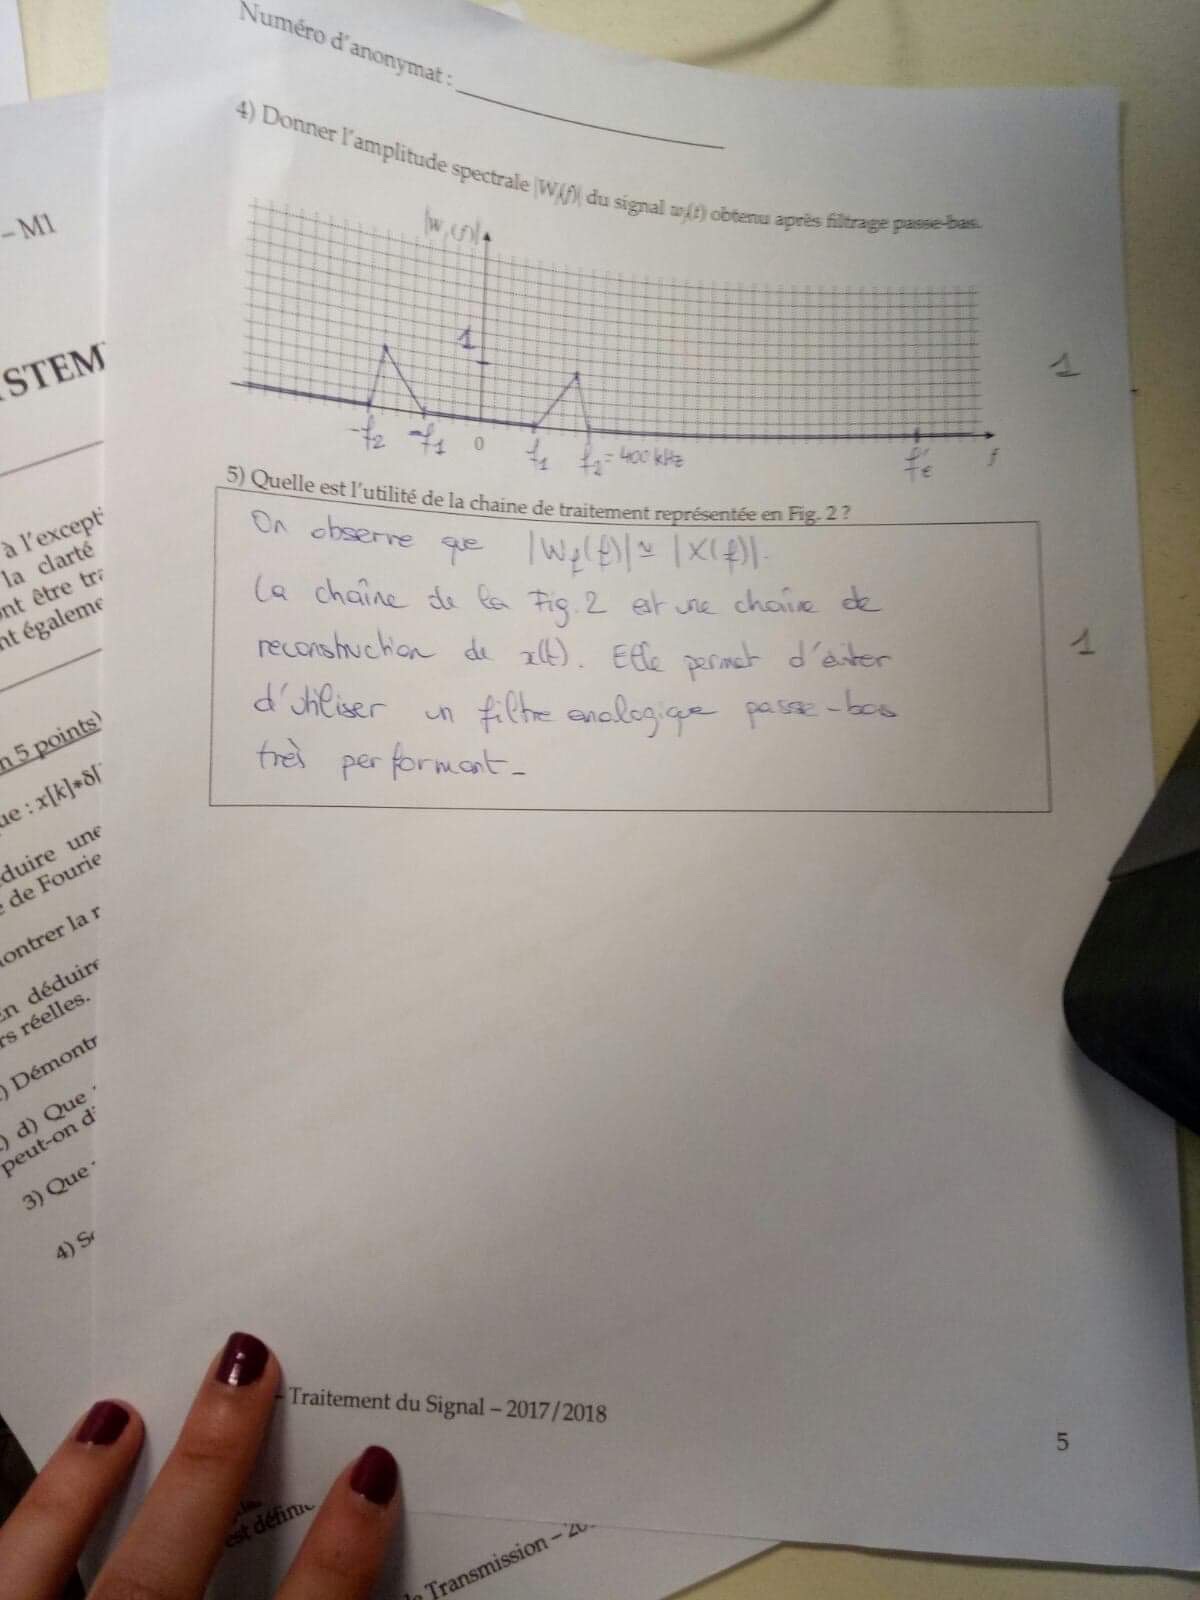 Numéro d'anonymat :
4) Donner l'amplitude spectrale |Wf(f)| du signal wf(t) obtenu après filtrage passe-bas.
1
1
-f2 -f1 0 f1 f2=400 kHz f'e f
5) Quelle est l'utilité de la chaine de traitement représentée en Fig. 2 ?
On observe que |Wf(f)| ≃ |X(f)|.
La chaîne de la Fig. 2 est une chaîne de
reconstruction de x(t). Elle permet d'éviter
1
d'utiliser un filtre analogique passe-bas
très performant-
– Traitement du Signal – 2017/2018
5
– M1
STEM
à l'except
la clarté
nt être tra
nt égaleme
n 5 points)
ue : x[k]*δ[
duire une
de Fourie
ontrer la r
En déduire
rs réelles.
) Démontr
) d) Que
peut-on d
3) Que
4) S
est définie
Transmission – 20